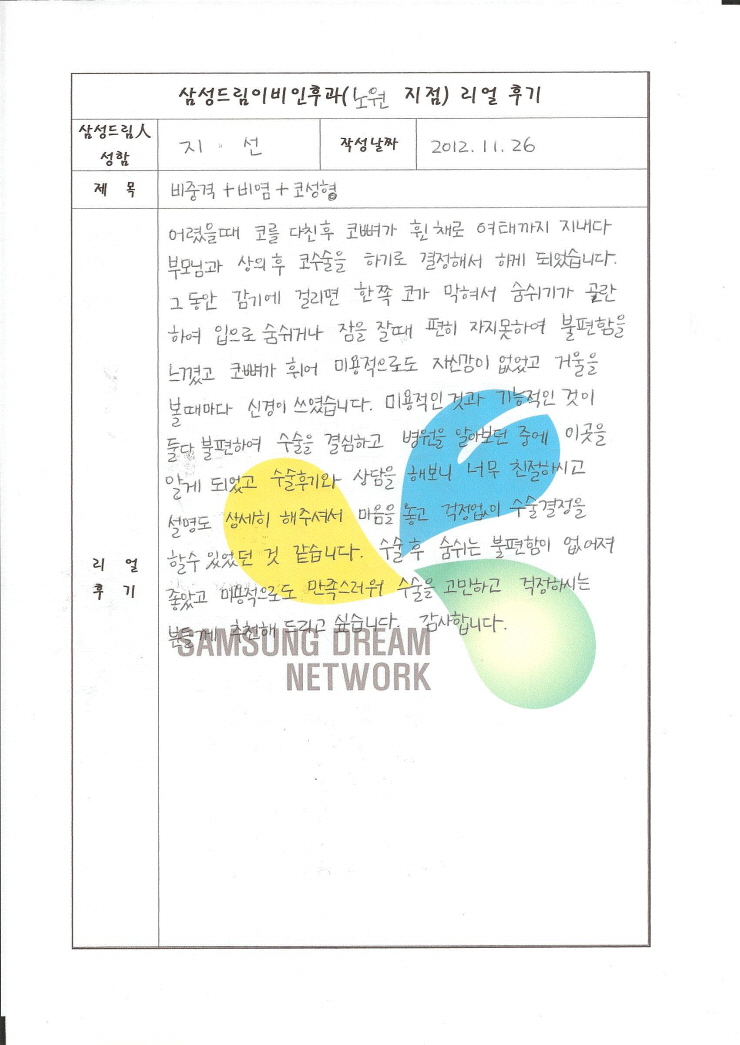 삼성드림이비인후과(노원 지점) 리얼 후기
삼성드림人 성함 지 · 선 작성날짜 2012. 11. 26
제 목 비중격 + 비염 + 코성형
리 얼 후 기
어렸을때 코를 다친후 코뼈가 휜채로 여태까지 지내다
부모님과 상의후 코수술을 하기로 결정해서 하게 되었습니다.
그동안 감기에 걸리면 한쪽 코가 막혀서 숨쉬기가 곤란
하여 입으로 숨쉬거나 잠을 잘때 편히 자지못하여 불편함을
느꼈고 코뼈가 휘어 미용적으로도 자신감이 없었고 거울을
볼때마다 신경이 쓰였습니다. 미용적인것과 기능적인 것이
둘다 불편하여 수술을 결심하고 병원을 알아보던 중에 이곳을
알게 되었고 수술후기와 상담을 해보니 너무 친절하시고
설명도 상세히 해주셔서 마음을 놓고 걱정없이 수술결정을
할수 있었던 것 같습니다. 수술후 숨쉬는 불편함이 없어져
좋았고 미용적으로도 만족스러워 수술을 고민하고 걱정하시는
분들께 추천해 드리고 싶습니다. 감사합니다.
SAMSUNG DREAM
NETWORK